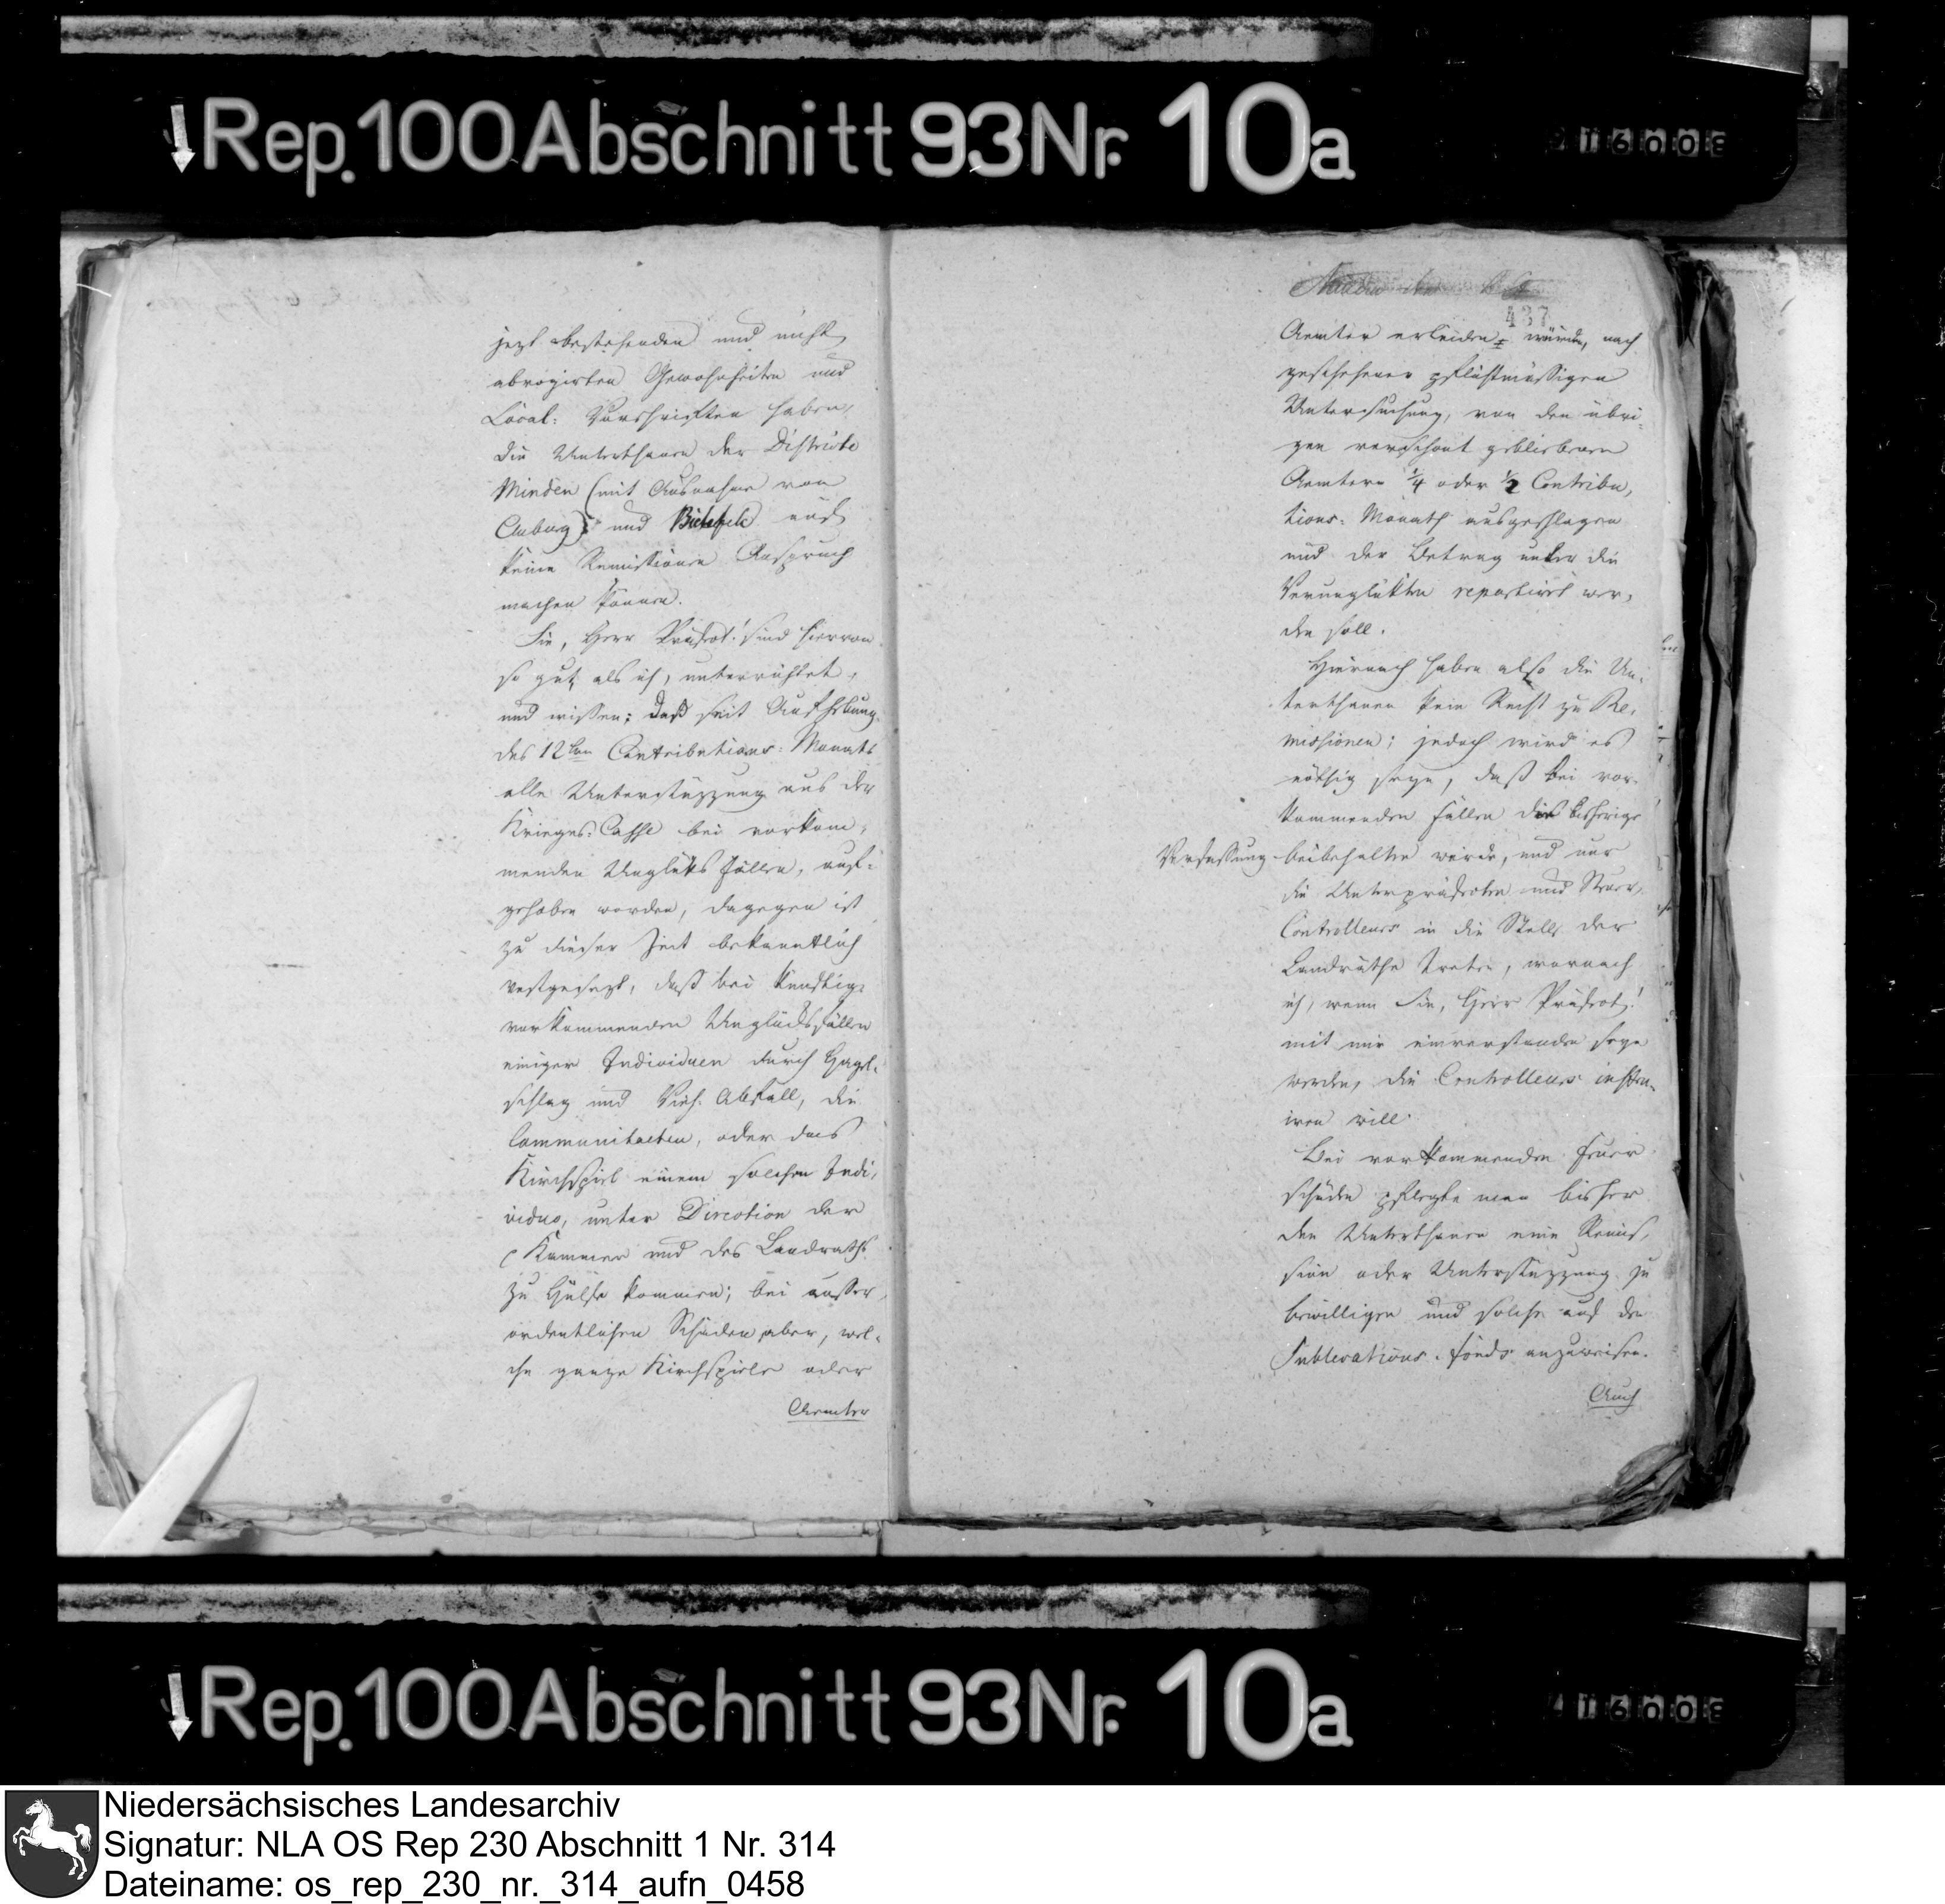 Rep. 100 Abschnitt 93 Nr. 10a
216008
jezt bestehenden und nicht
abrogirten Gewohnheiten und
Local-Vorschriften haben,
die Unterthanen der Districte
Minden (mit Ausnahme von
Auburg) und Bielefeld auf
keine Remissionen Anspruch
machen können.
Sie, Herr Präfect! sind hiervon
so gut als ich, unterrichtet,
und wissen; daß seit Aufhebung
des 12ten Contributions-Monats
alle Unterstüzzung aus der
Krieges-Casse bei vorkom-
menden Unglüks Fällen, auf-
gehoben worden, dagegen ist
zu dieser Zeit bekanntlich
vestgesezt, daß bei künftig
vorkommenden Unglücksfällen
einiger Individuen durch Hagel-
schlag und Vieh-Abfall, die
Communitaeten, oder das
Kirchspiel einem solchen Indi-
viduo, unter Direction der
Kammer und des Landraths
zu Hülfe kommen; bei ausser-
ordentlichen Schäden aber, wel-
che ganze Kirchspiele oder
Aemter
437
Aemter erleiden würden, nach
geschehener pflichtmäßigen
Untersuchung, von den übri-
gen verschont gebliebenen
Aemtern 1/4 oder 1/2 Contribu-
tions-Monath ausgeschlagen
und der Betrag unter die
Verunglükten repartirt wer-
den soll.
Hiernach haben also die Un-
terthanen kein Recht zu Re-
missionen; jedoch wird es
nöthig seyn, daß bei vor-
kommenden Fällen die bisherige
Verfassung beibehalten werde, und nur
die Unterpräfecten und Steuer-
Controlleurs in die Stelle der
Landräthe treten, wornach
ich, wenn Sie, Herr Präfect!
mit mir einverstanden seyn
werden, die Controlleurs instru-
iren will.
Bei vorkommenden Feuer
schäden pflegte man bisher
den Unterthanen eine Remis-
sion oder Unterstüzzung zu
bewilligen und solche auf den
Sublevations-Fonds anzuweisen.
Auch
Rep. 100 Abschnitt 93 Nr. 10a
216008
Niedersächsisches Landesarchiv
Signatur: NLA OS Rep 230 Abschnitt 1 Nr. 314
Dateiname: os_rep_230_nr._314_aufn_0458